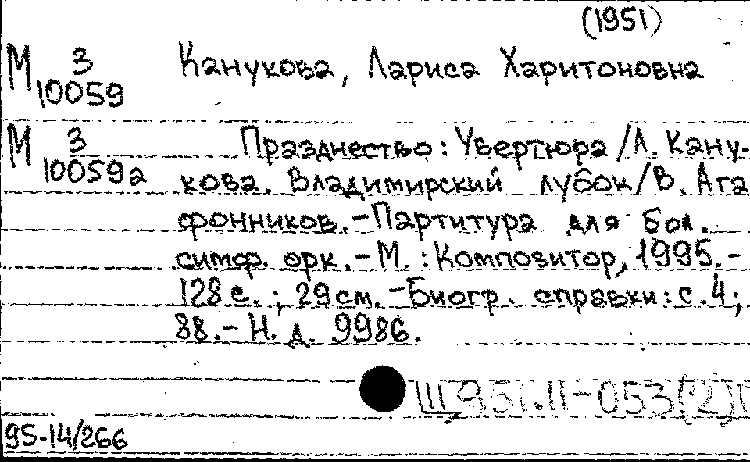 (1951)
М 3 10059 Канукова, Лариса Харитоновна
М 3 10059а Празднество: Увертюра /Л. Кану-
кова. Владимирский лубок/В. Ага
фонников.-Партитура для бол.
симф. орк.-М.: Композитор, 1995.-
128 с.; 29 см.-Биогр. справки: с. 4;
88.- Н. д. 9986.
Ш 951.II-053(2)
95-14/266